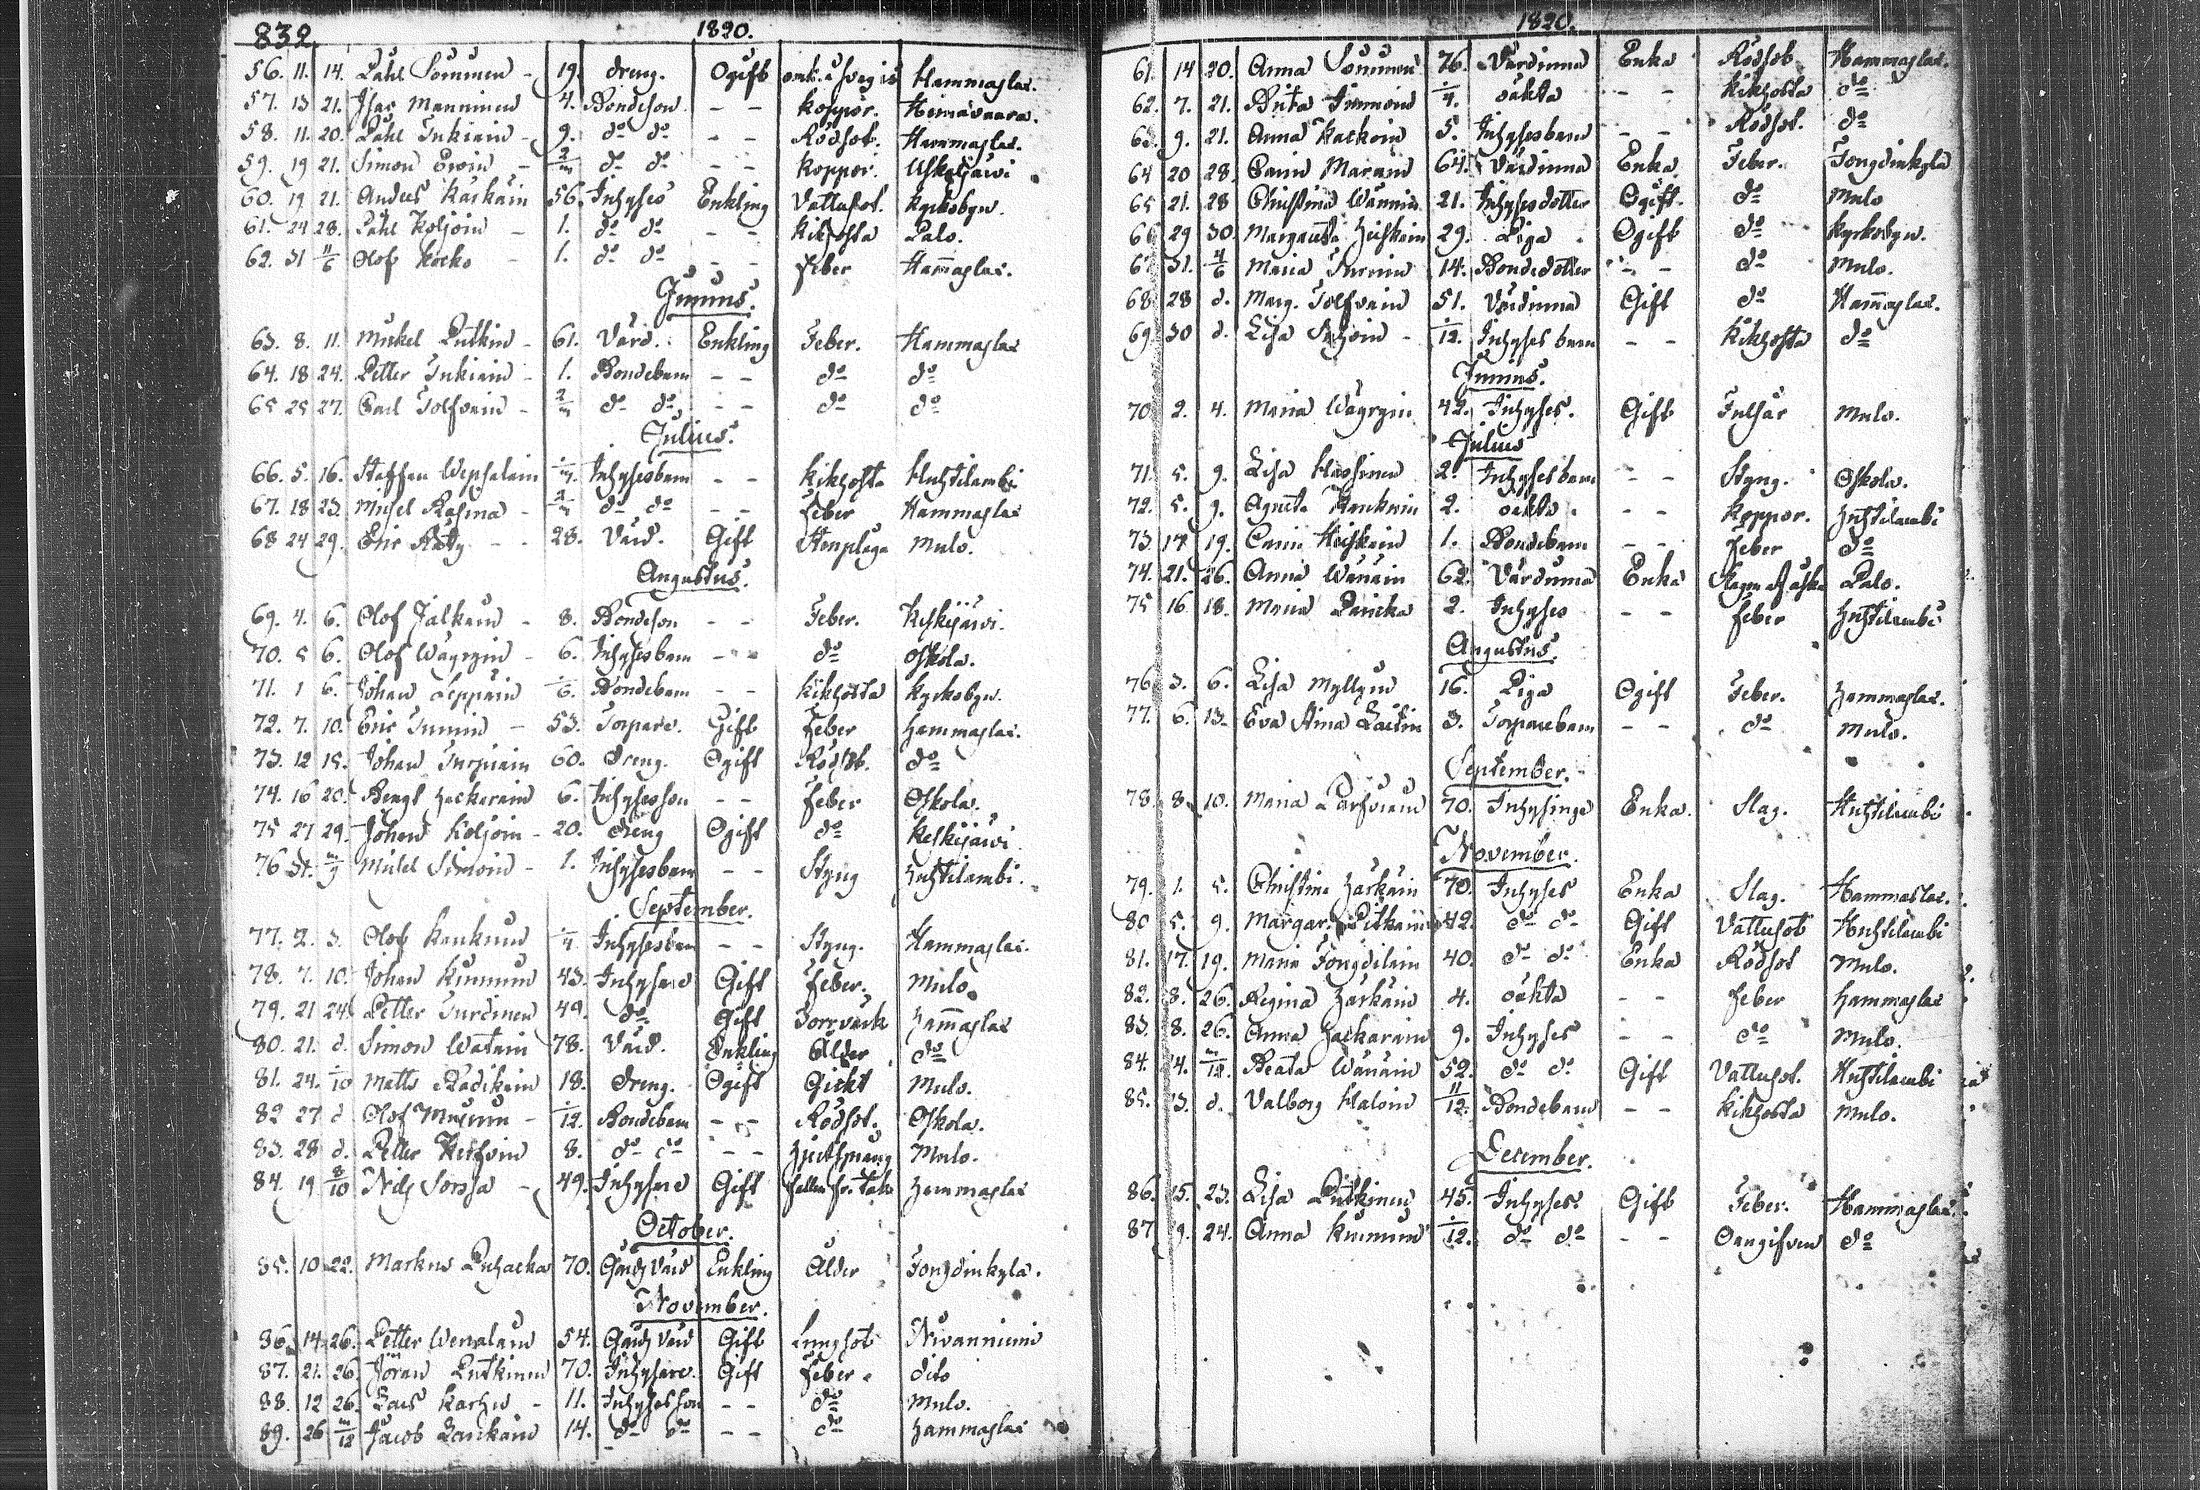 832
1820.
56. 11. 14. Påhl Sorminen - 19. dreng. Ogift omk. Hammaslax.
57. 13 21. Isac Manninen 4. Bondeson - - koppor. Heinävaara.
58. 11. 20. Påhl Inkinin - 9. do do - - Rödsot. Hammaslax.
59. 19 21. Simon Eroin - 2/m do do - - koppor. Uskaljärvi
60. 19 21. Anders Karkain 56. Inhyses Enkling Vattusot. kyrkobyn.
61. 24 28. Påhl Koljoin - 1. do do - - kikhosta Palo.
62. 31 11/6 Olof Kocko - 1. do do - - feber Hammaslax.
Junius.
63. 8. 11. Mickel Putkin - 61. Värd. Enkling Feber. Hammaslax
64. 18 24. Petter Inkinin - 1. Bondebarn - - do do
65 25 27. Carl Tolfvain - 2/m do do - - do do
Julius.
66. 5. 16. Staffan Wepsalain Inhysesbarn - - kikhosta Huhtilambi
67. 18 23. Michel Rasina - 2/m do do - - feber Hammaslax
68 24 29. Eric Räty - - 28. Värd. Gift Stenplåga Mulo.
Augustus.
69. 4. 6. Olof Jalkain - 8. Bondeson - - Feber. Keskijärvi.
70. 5 6. Olof Wäyryin - 6. Inhysesbarn - - do Oskola.
71. 1 6. Johan Leppäin Bondebarn - - kikhosta kyrkobyn.
72. 7. 10. Eric Turnin - 53. Torpare. Gift feber Hammaslax.
73. 12 15. Johan Turpiain 60. Dreng. Ogift Rödsot. do
74. 16 20. Bengt Zackarain 6. Inhysesson - - feber Oskola.
75 27 29. Johan Koljoin - 20. dreng Ogift do Keskijärvi.
76 31. m/9 Michel Simoin - 1. Inhysesbarn - - Styng Huhtilambi.
September.
77. 2. 3. Olof Kankunin Inhysesbarn - - Styng. Hammaslax.
78. 7. 10. Johan Kinnunin 43. Inhysare Gift feber. Mulo
79. 21 24. Petter Turdinen 49. do Gift Torrvärk Hammaslax
80. 21. d. Simon Watain 78. Värd. Enkling Ålder do
81. 24. 1/10 Matts Radikain 18. Dreng. Ogift Gickt Mulo.
82 27 d Olof Mururin - 1/12. Bondebarn - - Rödsot. Oskola.
83. 28 d. Petter Kerfvin 8. do do - - Hjertsprång Mulo.
84. 19 8/10 Nils Sorsa - 49. Inhysare Gift fallen fr. tak Hammaslax
October.
85. 10 22. Markus Puhacka 70. Gårds Värd Enkling Ålder Jongdinkylä.
November.
86. 14 26. Petter Wenalain 54. Gårds Värd Gift Lungsot Nivanniemi
87. 21. 26. Jöran Putkinen 70. Inhysare. Gift feber. dito
88. 12 26. Lars Karhu - 11. Inhysesson - - do Mulo.
89. 26 m/12 Jacob Laukain 14. do do - - do Hammaslax
1820.
61. 14 20. Anna Sorminen 76. Värdinna Enka Rödsot Hammaslax.
62. 7. 21. Brita Immoin oäkta - - kikhosta do
63. 9. 21. Anna Kackoin 5. Inhysesbarn - - Rödsot. do
64 20 28. Carin Marain 64. Värdinna Enka Feber. Jongdinkylä
65 21. 28 Christina Wännin 21. Inhysesdotter Ogift. do Mulo
66 29 30. Margareta Heiskain 29. Piga Ogift do kyrkobyn.
67 31. 4/6 Maria Turnin 14. Bondedotter - - do Mulo.
68 28 d. Marg. Tolfvain 51. Värdinna Gift do Hammaslax.
69 30 d. Lisa 1/12. Inhyses barn - - kikhosta do
Junius.
70 2. 4. Maria Wäyryin 42. Inhyses. Gift Mulo.
Julius
71. 5. 9. Lisa Hassinen 2. Inhysesbarn - - Styng. Oskola.
72. 5. 9. Agneta Kaukoin 2. oäkta. - - koppor. Huhtilambi
73 17 19. Carin Heiskain 1. Bondebarn - - feber do
74. 21. 26. Anna Wänäin 62. Värdinna Enka Slagen af åska Palo.
75 16. 18. Maria Laricka 2. Inhyses - - feber Huhtilambi
Augustus.
76 3. 6. Lisa Myllyin 16. Piga Ogift Feber. Hammaslax.
77. 6. 13. Eva Stina Laitin 3. Torparebarn - - do Mulo.
September.
78 8. 10. Maria Parfviain 70. Inhysinge Enka. Slag. Huhtilambi
November.
79. 1. 5. Christina Harkain 70. Inhyses Enka Slag. Hammaslax.
80 5. 9. Margar. Pitkäin 42. do do Gift Vattusot Huhtilambi
81. 17. 19. Maria Jongdilain 40. do do Enka Rödsot Mulo.
82. 8. 26. Regina Harkain 4. oäkta - - feber Hammaslax
83. 8. 26. Anna Zackarain 9. Inhyses - - do Mulo.
84. 14. m/12. Beata Wänäin 52. do do Gift Vattusot. Huhtilambi
85. 3. d. Valborg Haloin 11/12. Bondebarn - - kikhosta Mulo.
December.
86. 15. 23. Lisa Putkinen 45. Inhyses. Gift Feber. Hammaslax.
87 9. 24. Anna Kinnunin 1/12. do do - - Oangifven do